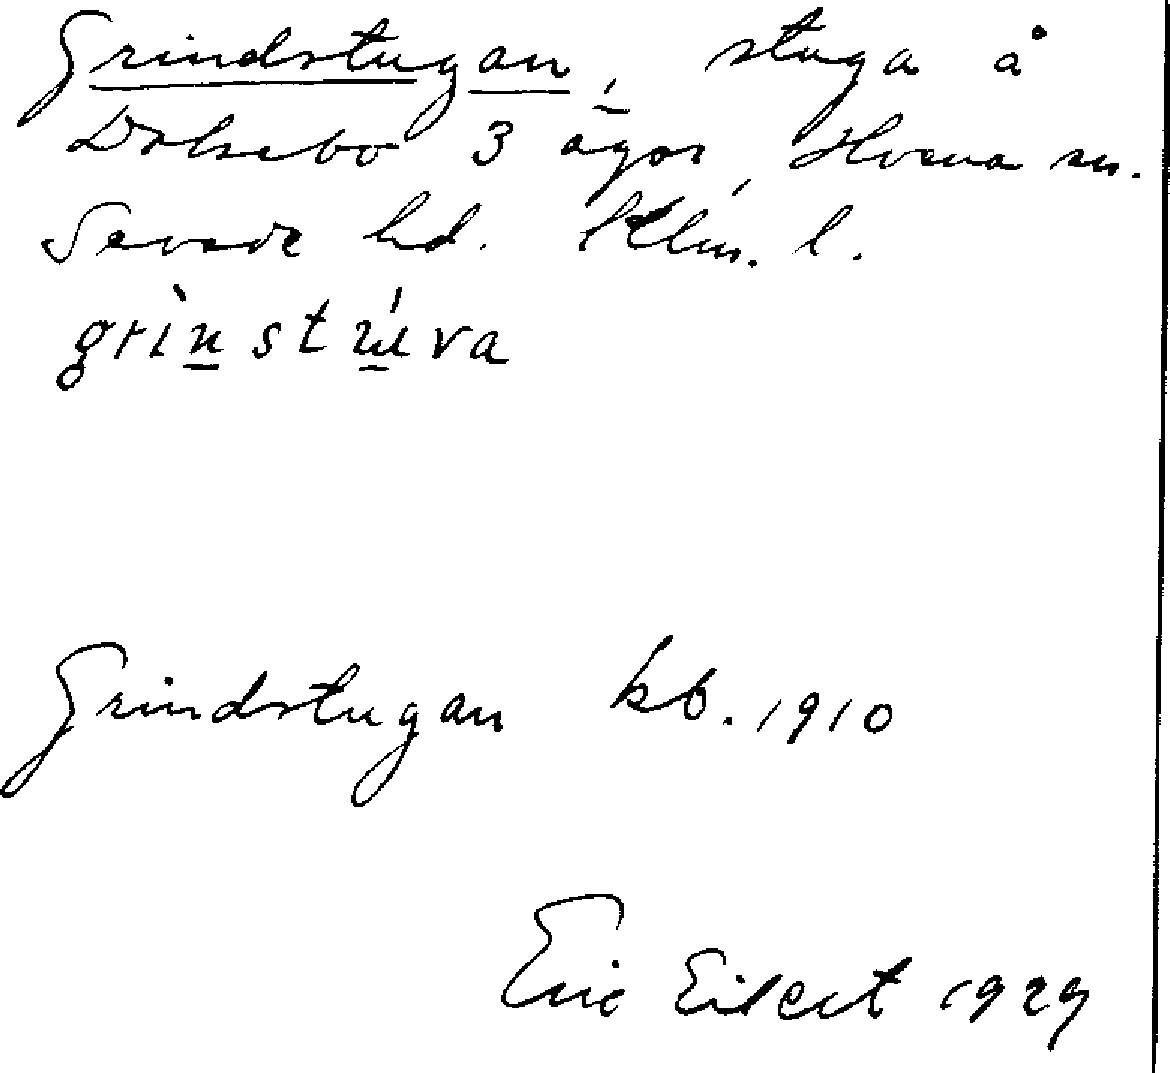 Grindstugan, stuga å
3 ägor, Hvena sn.
Sevede hd. Klm. l.
grìn̠stú̠va
Grindstugan kb. 1910
Eric Eilert 1929